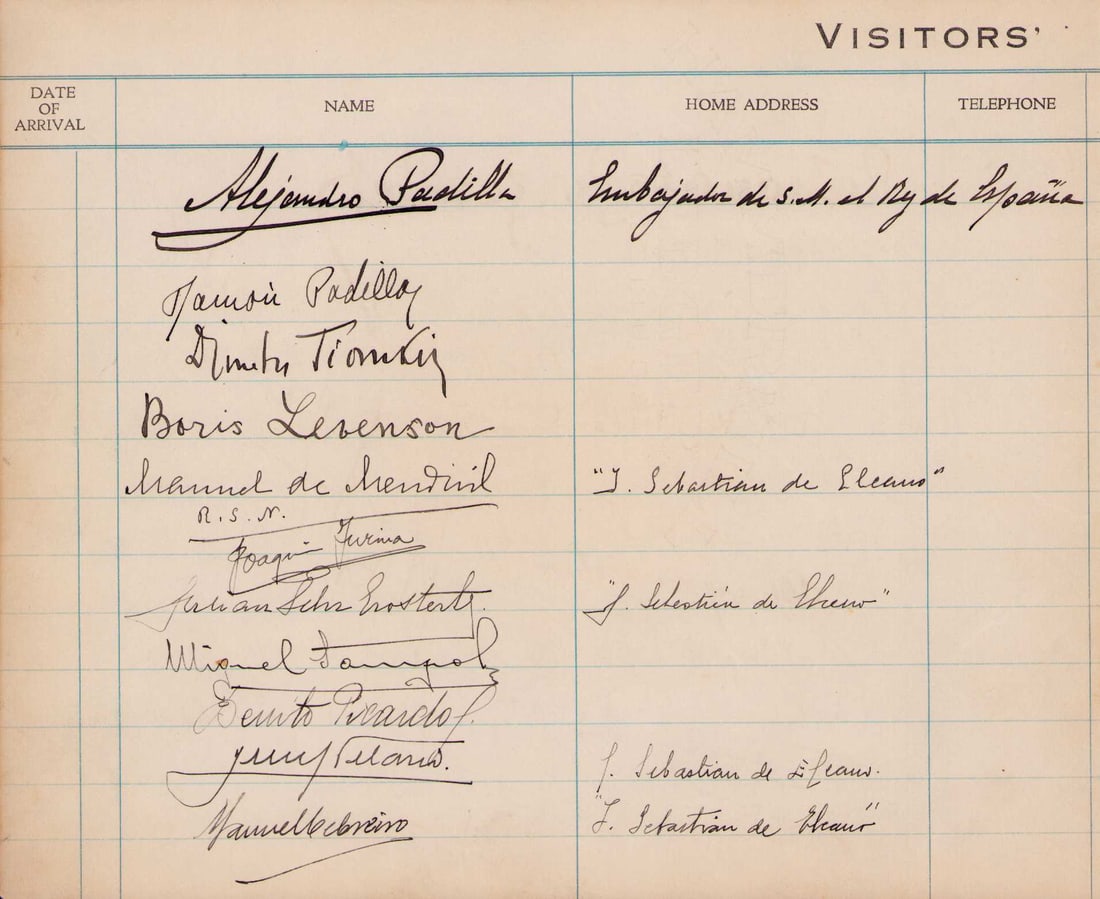 VISITORS'
DATE OF ARRIVAL
NAME
HOME ADDRESS
TELEPHONE
Alejandro Padilla Embajador de S.M. el Rey de España
Ramón Padilla
Dimitri Tiomkin
Boris Levenson
Manuel de Mendivil "J. Sebastian de Elcano"
R.S.N.
Joaquin
Julian "J. Sebastián de Elcano"
Miguel Sampol
Benito Picardo
J. Sebastian de Elcano.
Manuel Cebreiro "J. Sebastian de Elcano"